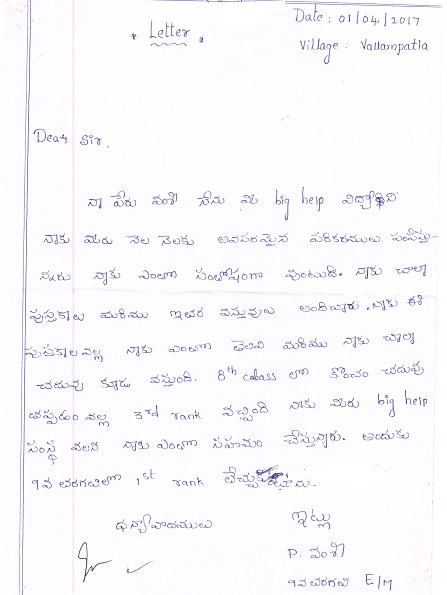 * Letter *
Date : 01/04/2017
Village : Vallampatla
Dear Sir.
నా పేరు వంశీ నేను మీ big help విద్యార్థిని
నాకు మీరు నెల నెలకు అవసరమైన పరికరములు పంపిస్తు-
న్నరు నాకు ఎంతో సంతోషంగా వుంటుంది. నాకు చాలా
పుస్తకాలు మరియు ఇతర వస్తువులు అందినాయి. నాకు ఈ
పుస్తకాల వల్ల నాకు ఎంతో తెలివి మరియు నాకు చాలా
చదువు కూడ వస్తుంది. 8th calass లో కొంచం చదువు
తప్పడం వల్ల 3rd rank వచ్చింది నాకు మీరు big help
సంస్థ వలన నాకు ఎంతో సహయం చేస్తున్నారు. అందుకు
9వ తరగతిలో 1st rank
ధన్యావాదములు
ఇట్లు
P. వంశీ
9వ తరగతి E/M